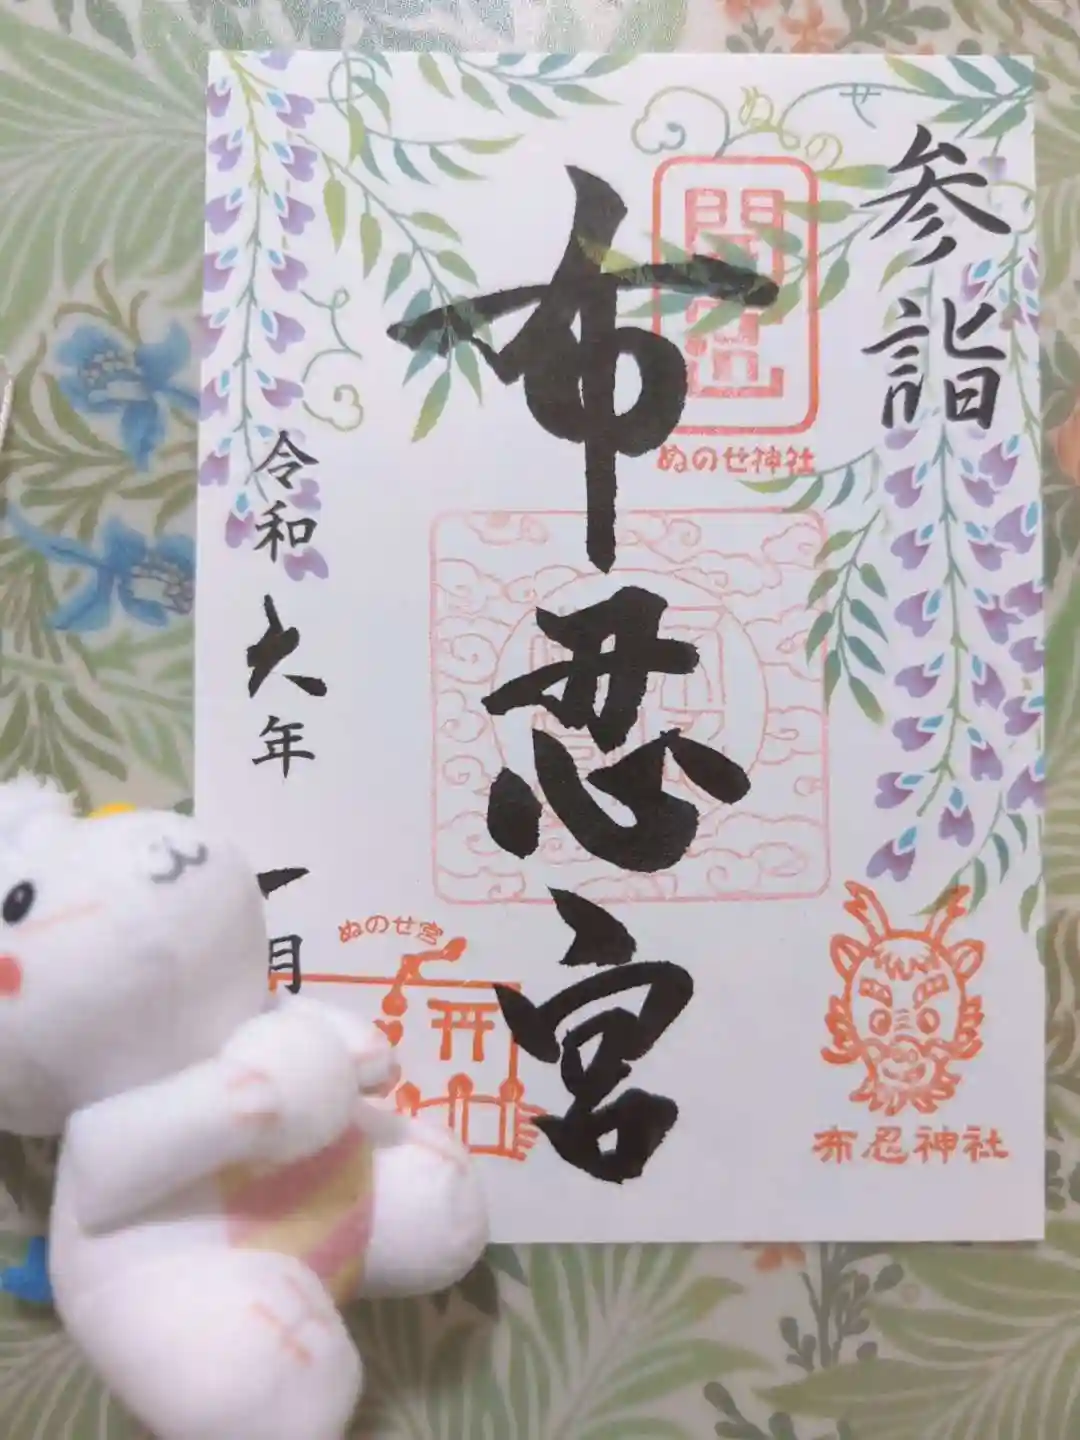 参詣
ぬのせ
開運
ぬのせ神社
布忍宮
布忍神社
ぬのせ宮
令和六年一月